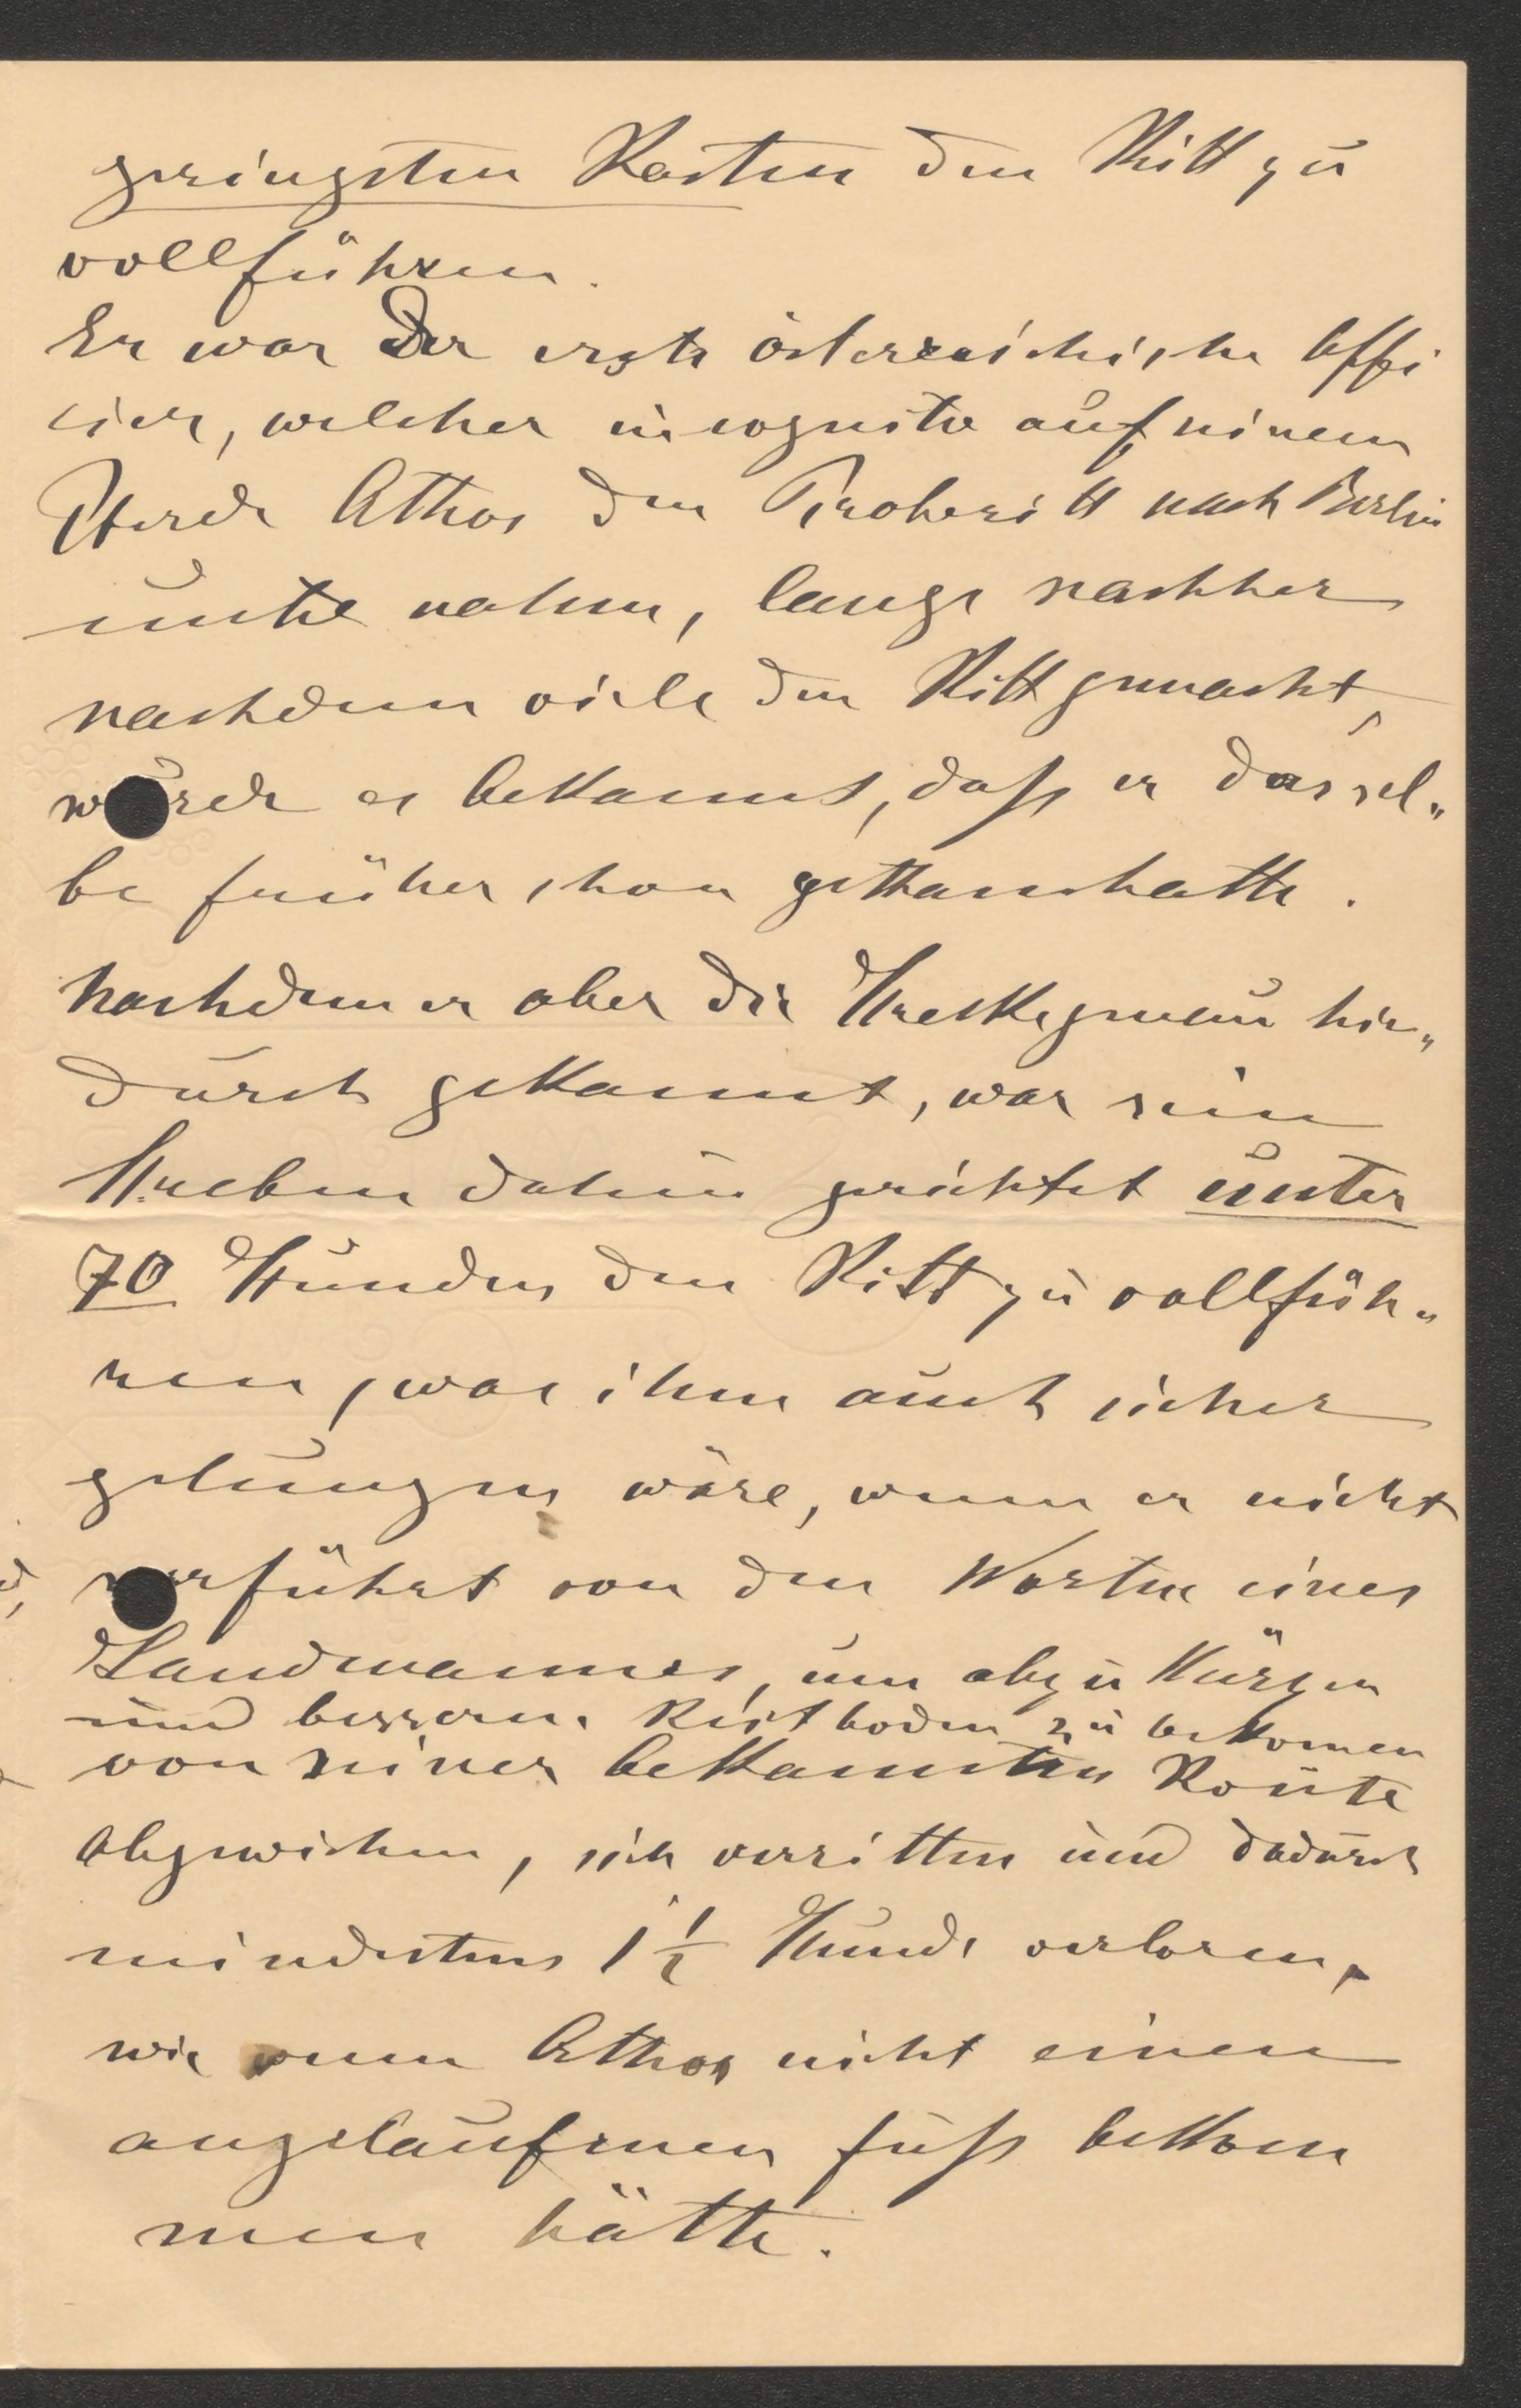 geringsten Kosten den Ritt zu
vollführen.
Er war der erste österreichische Offi
cier, welcher incognito auf seinem
Pferde Athos den Proberitt nach Berlin
unternahm, lange nachher
nachdem viele den Ritt gemacht,
wurde es bekannt, daß er dassel„
be früher schon gethan hatte.
Nachdem er aber die Strecke genau hie„
durch gekannt, war sein
Streben dahin gerichtet unter
70 Stunden den Ritt zu vollfüh„
ren, was ihm auch sicher
gelungen wäre, wenn er nicht
verführt von den Worten eines
Landmannes, um abzukürzen
und besseren Reitboden zu bekomen
von seiner bekannten Route
abgewichen, sich verritten und dadurch
mindestens 1 1/2 Stunde verloren,
wie wenn Athos nicht einen
angelaufenen Fuß bekom
men hätte.